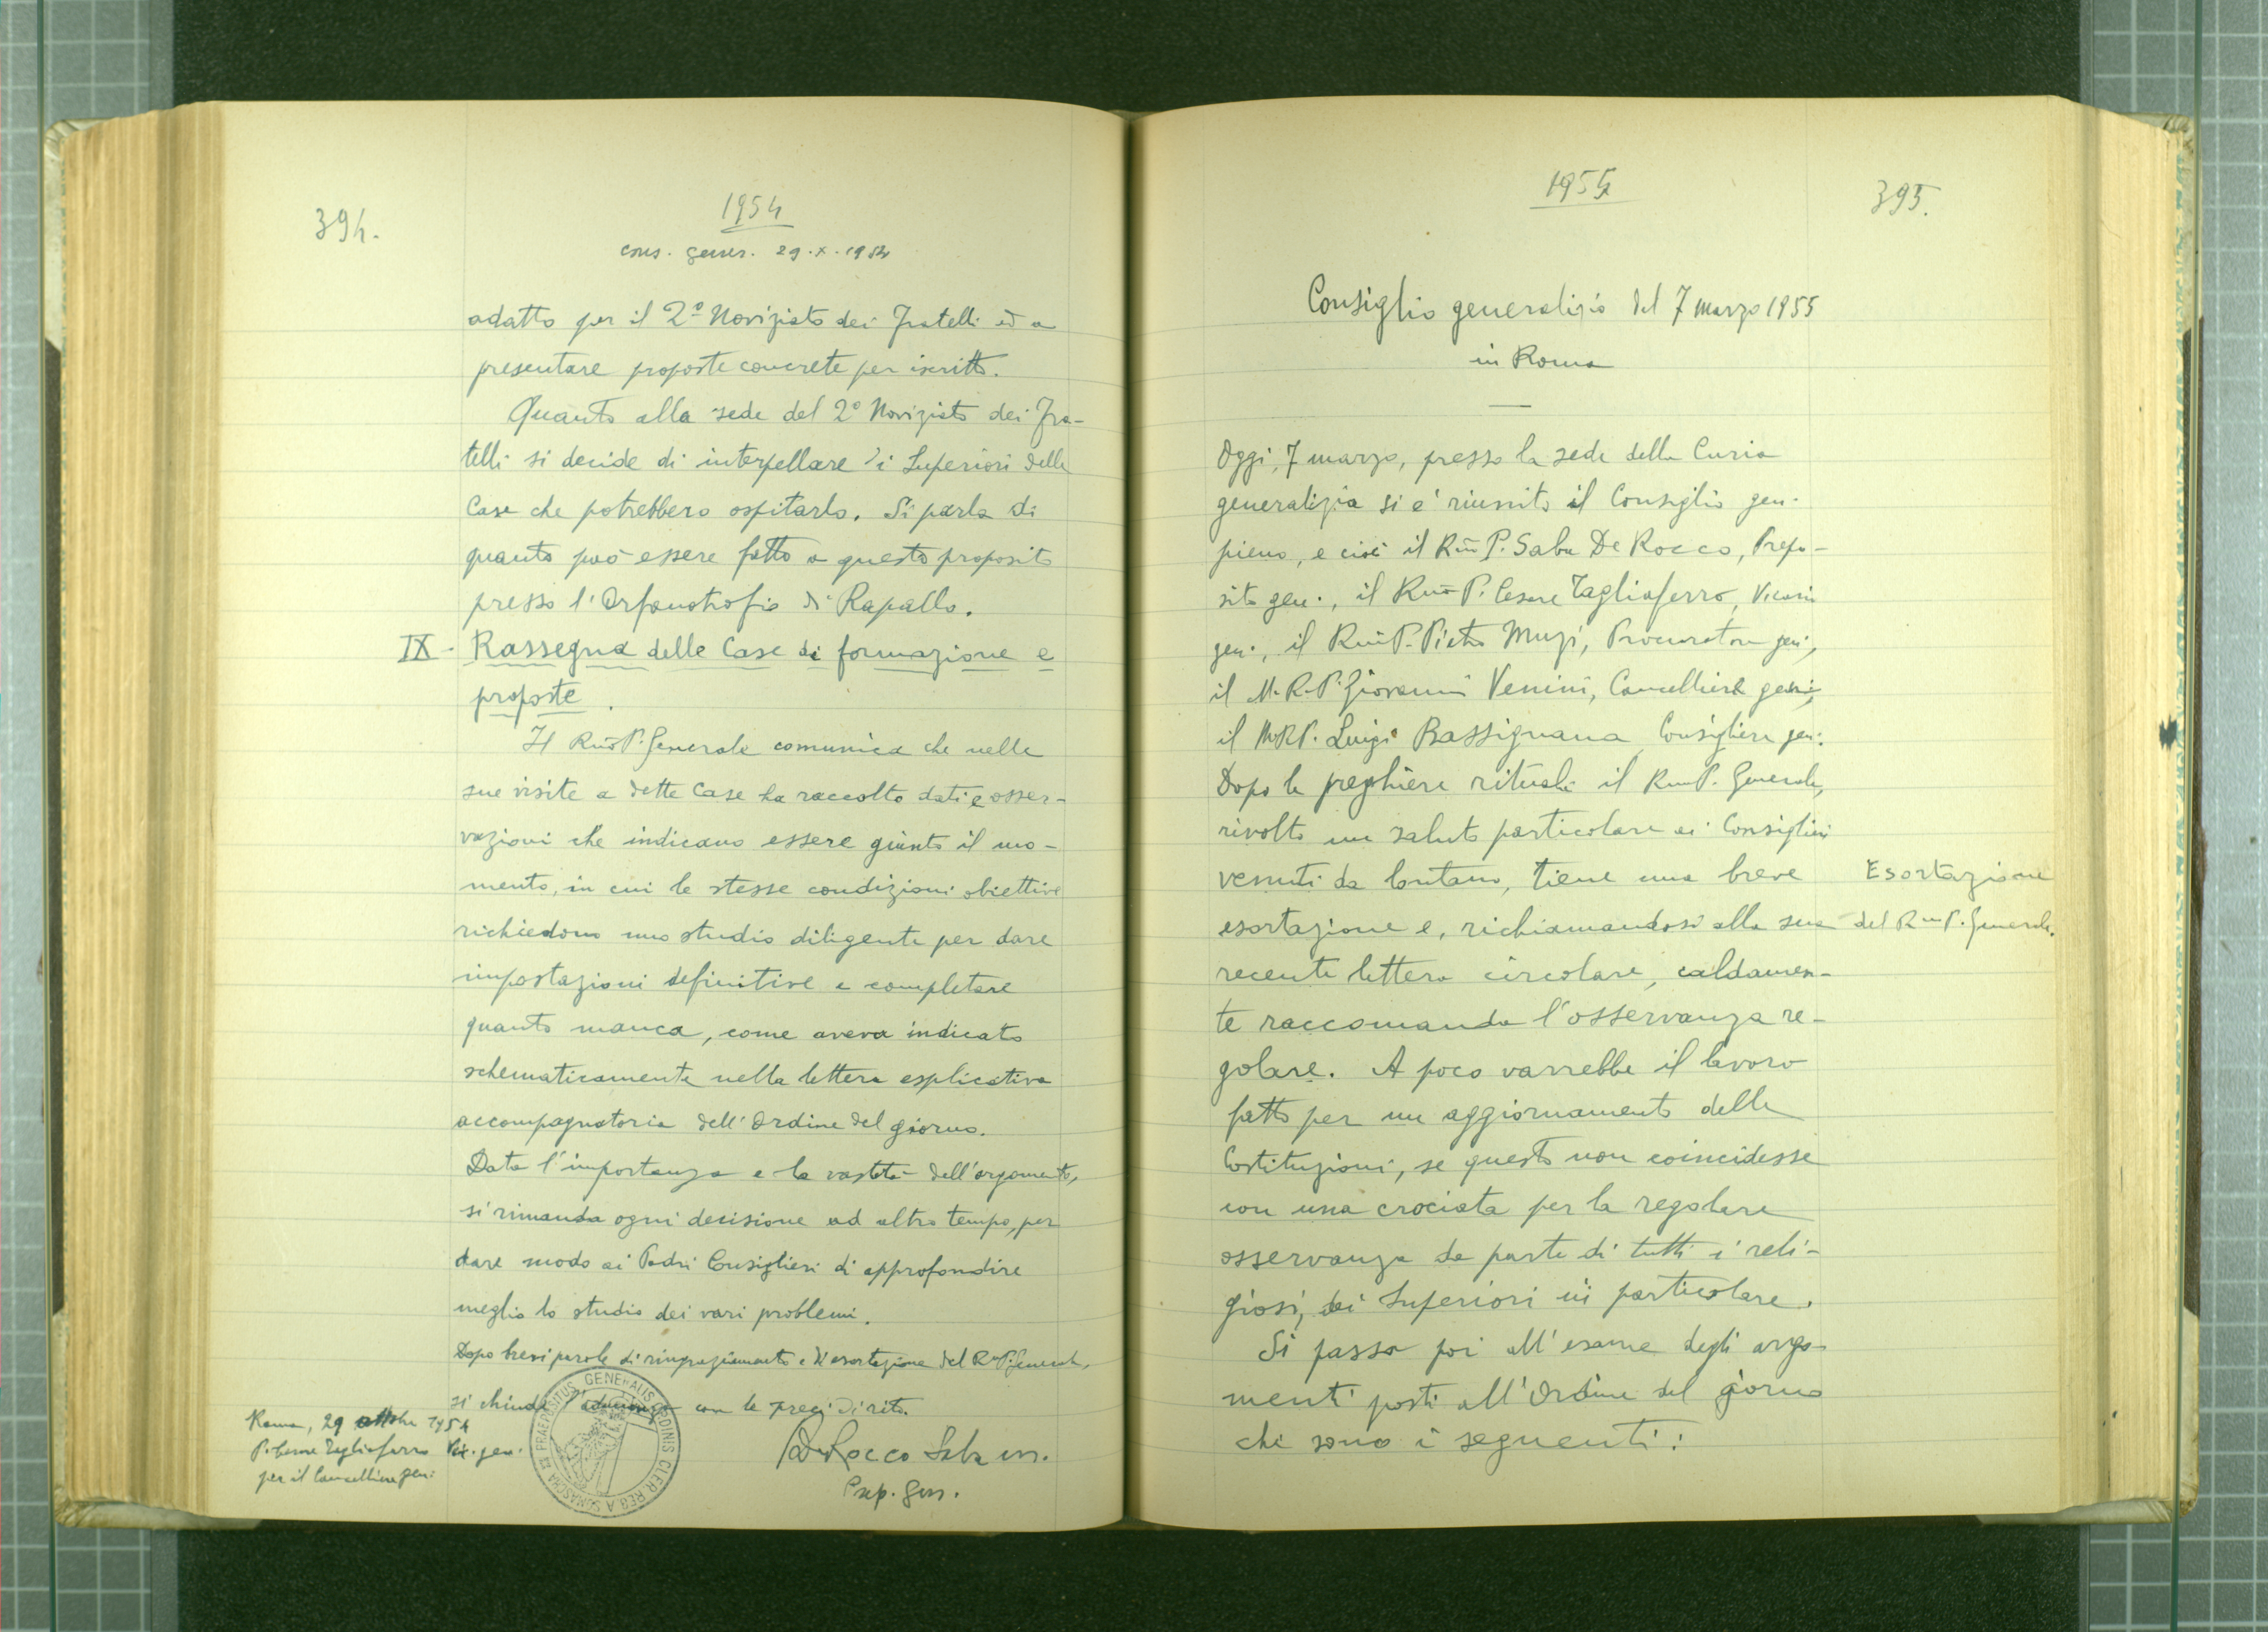 394.
1954
cons. gener. 29.X.1954
adatto per il 2º Noviziato dei Fratelli ed a
presentare proposte concrete per iscritto.
Quanto alla sede del 2º Noviziato dei Fra-
telli si decide di interpellare i Superiori delle
Case che potrebbero ospitarlo. Si parla di
quanto può essere fatto a questo proposito
presso l'Orfanotrofio di Rapallo.
IX - Rassegna delle Case di formazione e
proposte.
Il Rm̄o P. Generale comunica che nelle
sue visite a dette Case ha raccolto dati e osser-
vazioni che indicano essere giunto il mo-
mento, in cui le stesse condizioni obiettive
richiedono uno studio diligente per dare
impostazioni definitive e completare
quanto manca, come aveva indicato
schematicamente nella lettera esplicativa
accompagnatoria dell'Ordine del giorno.
Data l'importanza e la vastità dell'argomento,
si rimanda ogni decisione ad altro tempo, per
dare modo ai Padri Consiglieri di approfondire
meglio lo studio dei vari problemi.
Dopo brevi parole di ringraziamento e d'esortazione del R.mo P. Generale,
si chiude l'adunanza con le preci di rito.
Roma, 29 ottobre 1954
P. Cesare Tagliaferro Vic. gen.
per il Cancelliere gen.
PRAEPOSITUS GENERALIS ORDINIS CLER. REG. A SOMASCHA
De Rocco Saba
Prep. Gen.
1955
395.
Consiglio generalizio del 7 marzo 1955
in Roma
Oggi, 7 marzo, presso la sede della Curia
generalizia si è riunito il Consiglio gen.
pieno, e cioè il Rm̄o P. Saba De Rocco, Prepo-
sito gen., il Rm̄o P. Cesare Tagliaferro, Vicario
gen., il Rm̄o P. Pietro Muzi, Procuratore gen.,
il M. R. P. Giovanni Venini, Cancelliere gen.,
il M.R.P. Luigi Bassignana Consigliere gen.
Dopo le preghiere rituali il Rmo P. Generale,
rivolto un saluto particolare ai Consiglieri
venuti da lontano, tiene una breve
esortazione e, richiamandosi alla sua
Esortazione
del R.mo P. Generale.
recente lettera circolare, caldamen-
te raccomanda l'osservanza re-
golare. A poco varrebbe il lavoro
fatto per un aggiornamento delle
Costituzioni, se questo non coincidesse
con una crociata per la regolare
osservanza da parte di tutti i reli-
giosi, dei Superiori in particolare.
Si passa poi all'esame degli argo-
menti posti all'Ordine del giorno
che sono i seguenti: